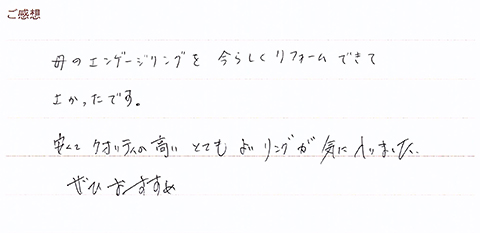 ご感想
母のエンゲージリングを 今らしくリフォームできて
よかったです。
安くて クオリティの高い とても よいリングが 気に入りました。
ぜひ おすすめ